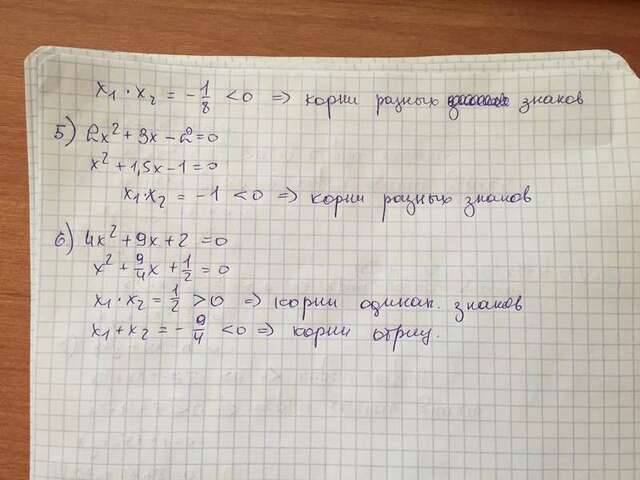 x₁ · x₂ = -1/8 < 0 => корни разных знаков
5) 2x² + 3x - 2 = 0
x² + 1,5x - 1 = 0
x₁ · x₂ = -1 < 0 => корни разных знаков
6) 4x² + 9x + 2 = 0
x² + 9/4x + 1/2 = 0
x₁ · x₂ = 1/2 > 0 => корни одинак. знаков
x₁ + x₂ = -9/4 < 0 => корни отриц.